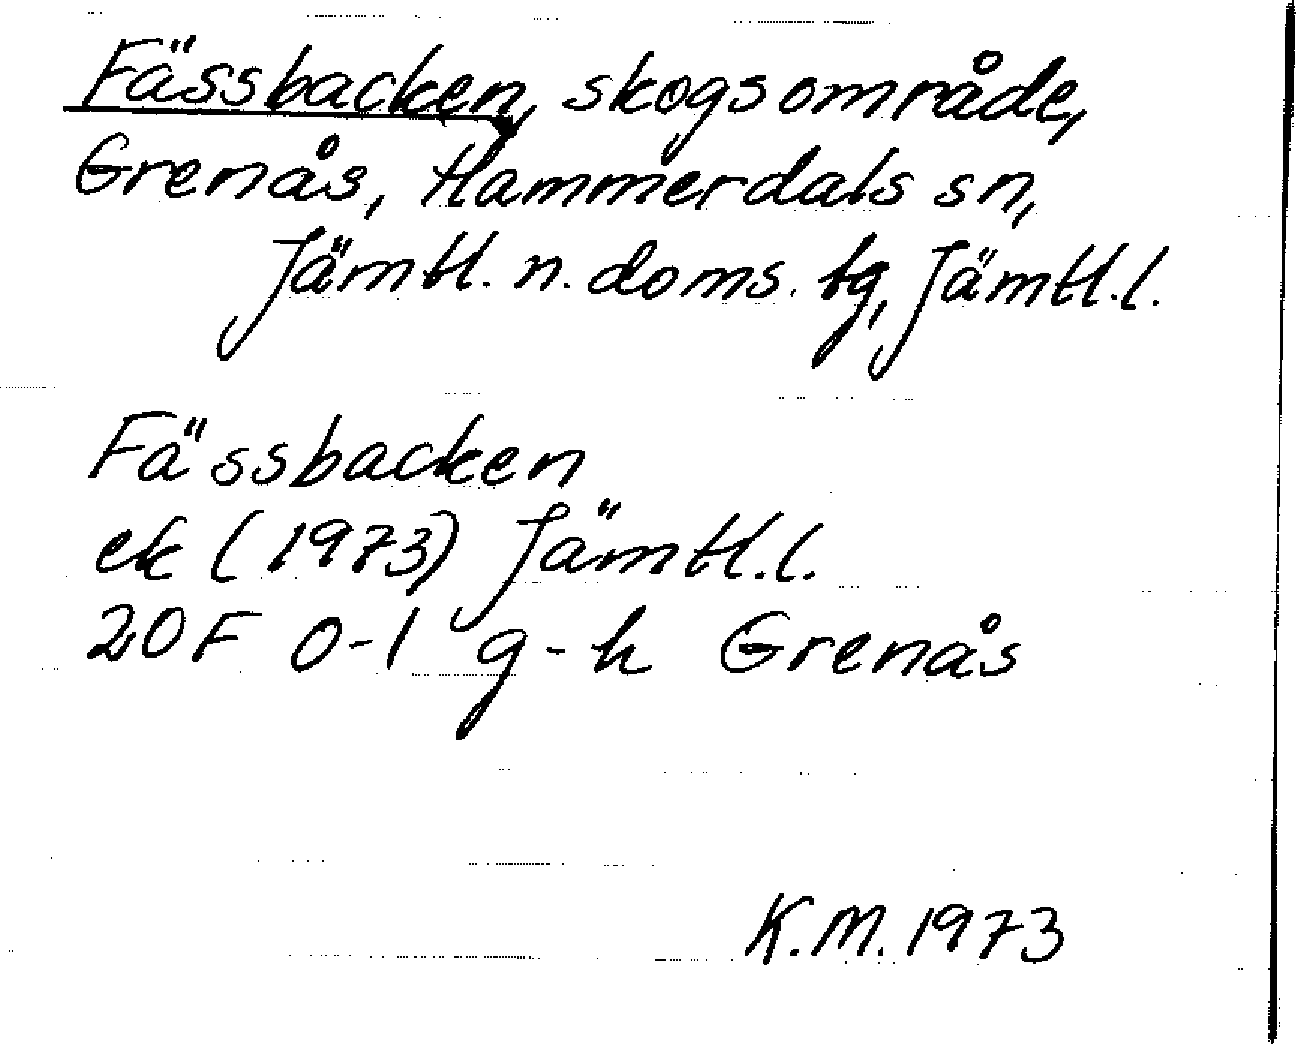 Fässbacken, skogsområde,
Grenås, Hammerdals sn,
Jämtl. n. doms. tg, Jämtl.l.
Fässbacken
ek (1973) Jämtl.l.
20F 0-1 g-h Grenås
K.M. 1973